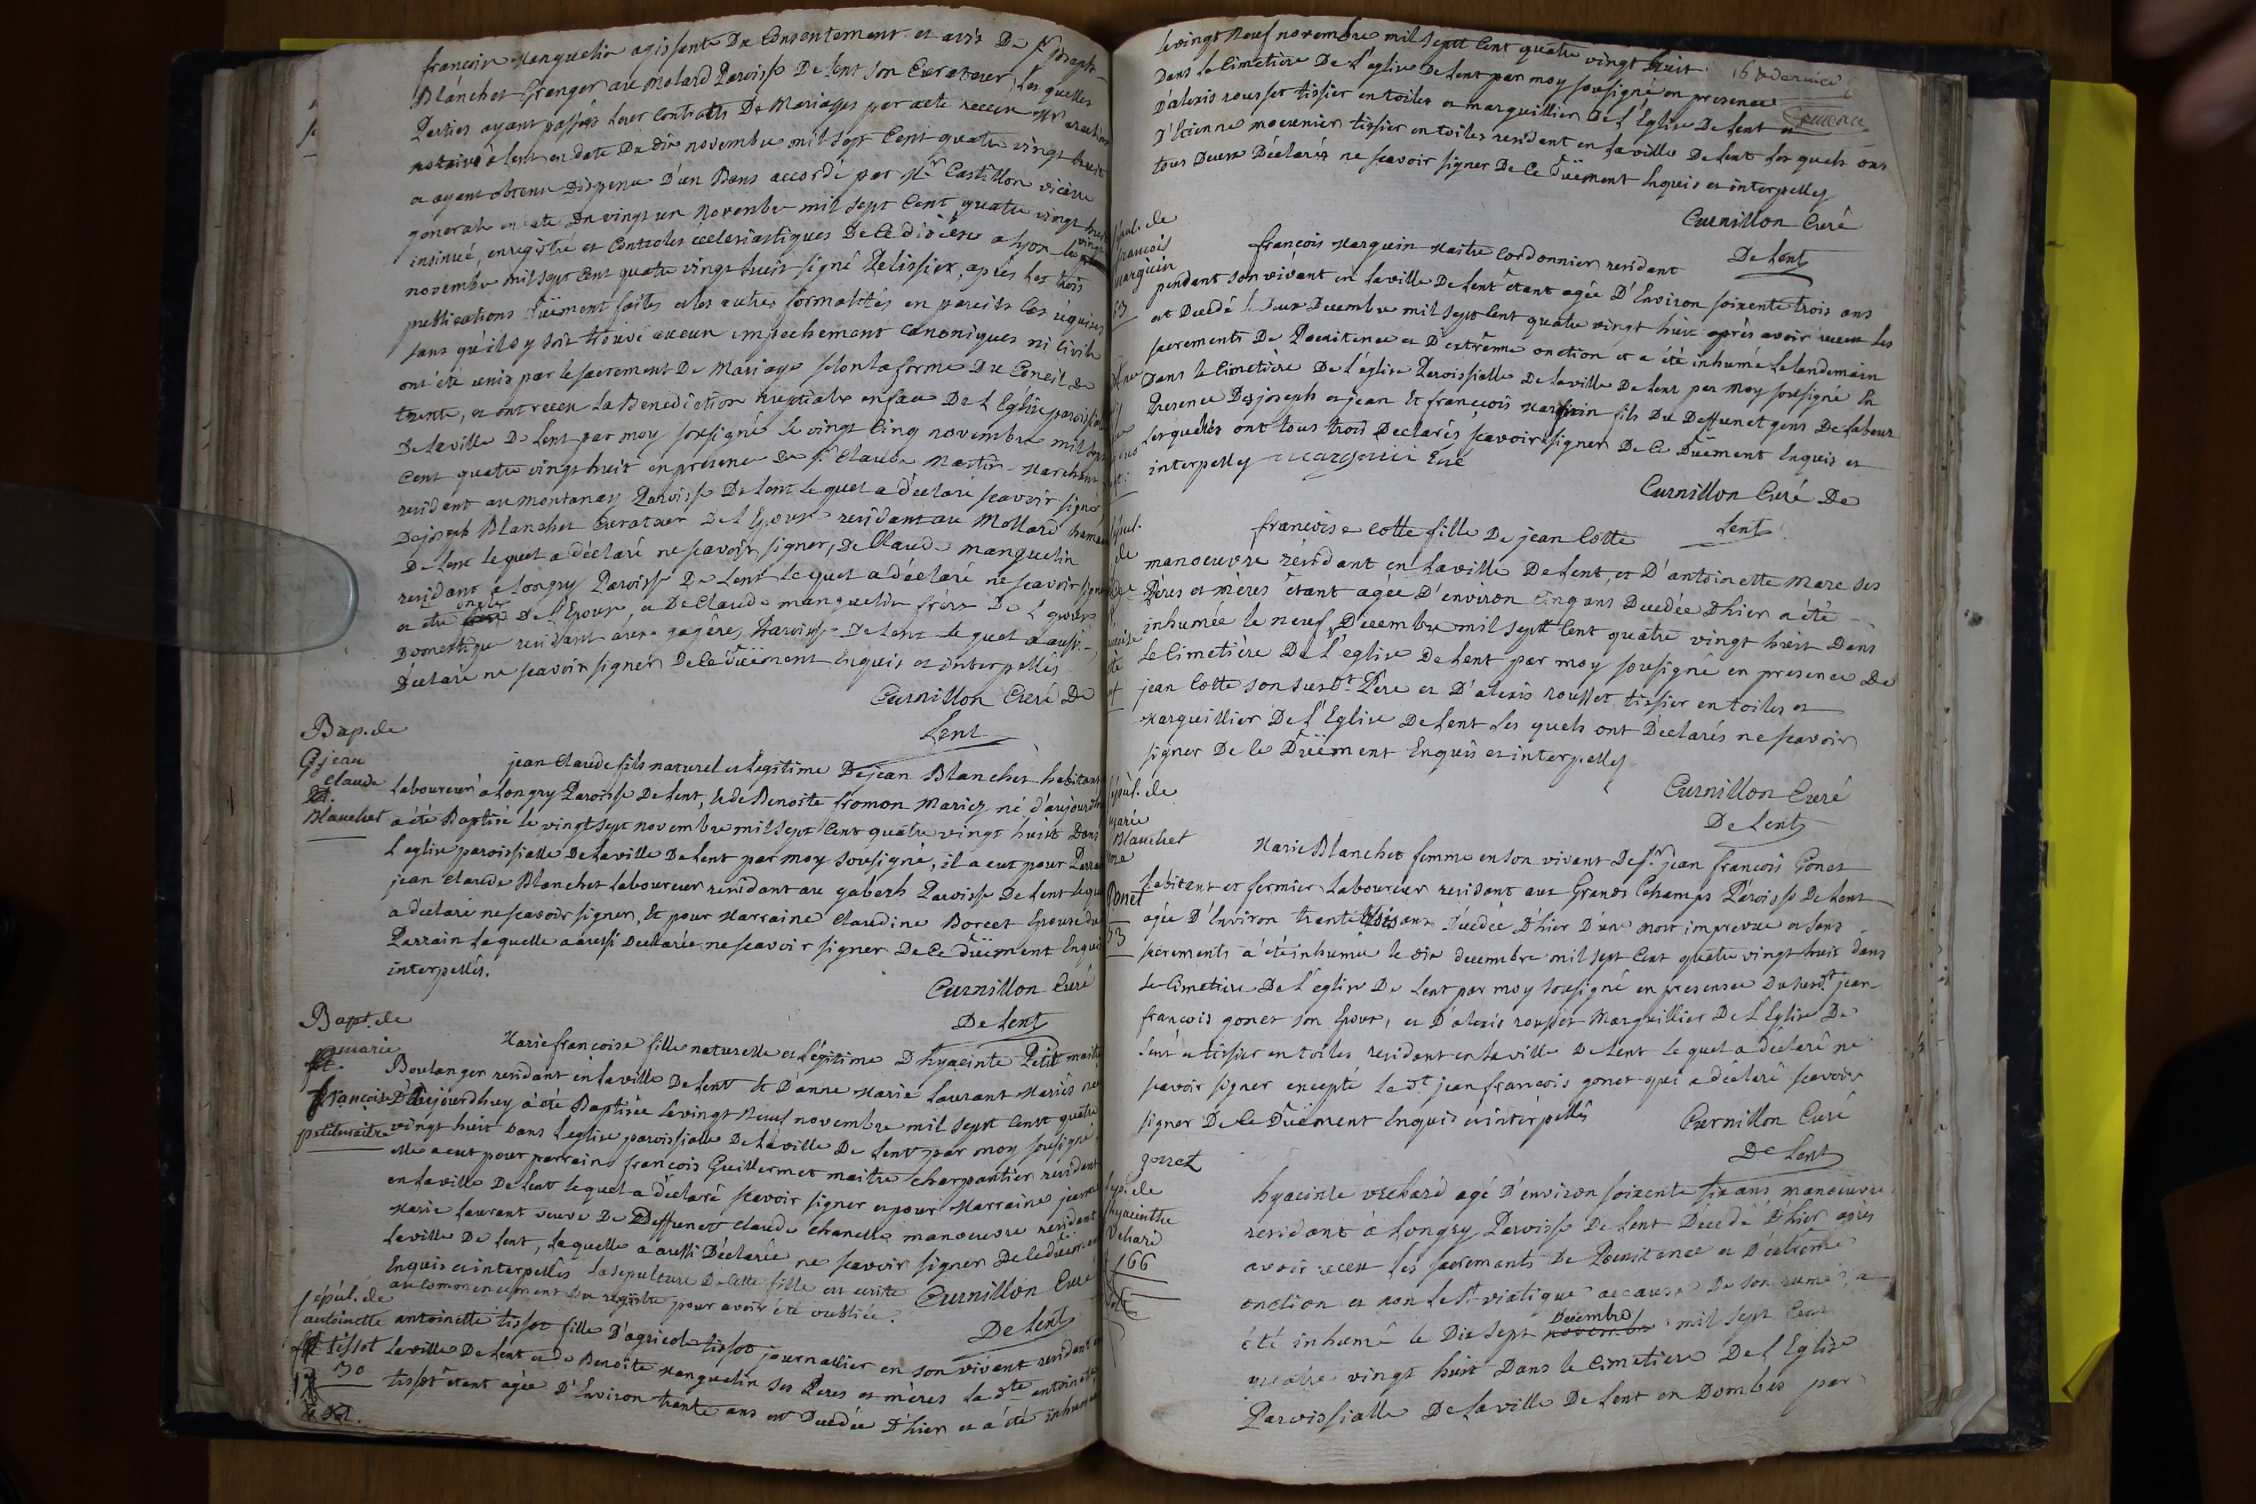 françois Manguelin agissante Du Consentement et avis De Sr joseph
Blanchet Granger au Molard Paroisse De Lent son Curateur, Les quelles
Parties ayant passés leur Contracts De Mariages par acte reccu Mr
notaire à Lent en date Du dix novembre mil sept Cent quatre vingt huit
et ayant obtenu Dispense D'un Bans accordé par Mr Castillon vicaire
general en date Du vingt un Novembre mil sept Cent quatre vingt huit
insinué, enregistré et Controles ecclesiastiques De Ce diocèse a Lyon le vingt
novembre mil sept Cent quatre vingt huit signé Pelissier, après les trois
publications Düement faites et les autres formalités en pareils Cas réquises
sans qu'il y soit trouvé aucun empechement Canoniques ni Civils
ont été unis par le sacrement De Mariage selon la forme Du Concile de
trente, et ont recceu La Benediction nuptiale en face De L'Eglise paroissialle
De La ville De Lent par moy soussigné le vingt Cinq novembre mil sept
Cent quatre vingt huit en presence de sr Claude Martin Marchant
residant au montanay Paroisse De Lent le quel a déclaré scavoir signé
De joseph Blanchet Curateur De L'Epouse residant au Mollard
De Lent le quel a déclaré ne scavoir signer, De Claude Manguelin
residant a Longry Paroisse De Lent le quel a déclaré ne scavoir signer
et oncle De L'Epouse et De Claude manguelin frère De L'Epouse
Domestique residant Paroisse De Lent le quel a aussi
Déclaré ne scavoir signer De Ce Düement Enquis et interpellés
Curnillon Curé De
Lent
Bap. de
jean
Claude
Blanchet
jean Claude fils naturel et Legitime De jean Blanchet habitant
Laboureur à Longry Paroisse De Lent, Et de Benoite fromon Mariez né d'aujourdhuy
a été Baptisé le vingt sept novembre mil sept Cent quatre vingt huit Dans
L'eglise paroissialle De La ville De Lent par moy soussigné, il a eut pour Parrain
jean Claude Blanchet Laboureur residant au gabech Paroisse De Lent Lequel
a declaré ne scavoir signer, Et pour Marraine Claudine Borcet Epouse du
Parrain Laquelle a aussi Declarée ne scavoir signer De Ce Düement Enquis
interpellés.
Curnillon Curé
De Lent
Bapt. de
marie
françoise
petitmaitre
Marie françoise fille naturelle et Légitime D'hyacinte Petit maitre
Boulanger residant en La ville De Lent Et D'anne Marie Laurant Mariés née
D'aujourdhuy a été Baptisée Le vingt Neuf novembre mil sept Cent quatre
vingt huit Dans L'eglise paroissialle De La ville De Lent par moy soussigné,
elle a eut pour parrain françois Guillermet maitre Charpantier residant
en La ville De Lent lequel a déclaré scavoir signer et pour Marraine jeanne
Marie Laurant veuve De Deffunct Claude Chanelle manoeuvre residant
La ville De Lent, Laquelle a aussi Déclarée ne scavoir signer De Ce duement
Enquis et interpellés La sepulture De Cette fille est ecrite
au Commencement du registre pour avoir été oubliée.
Curnillon Curé
De Lent
sépul. de
antoinette
tissot
30
antoinette tissot fille D'agricole tissot journallier en son vivant residant
La ville De Lent et de Benoite Manguelin ses Peres et mères La dte antoinette
tissot étant agée D'Environ trante ans est Décedée D'hier et a été inhumée
le vingt Neuf novembre mil sept Cent quatre vingt huit
Dans le Cimetière De L'eglise De Lent par moy soussigné en presence
D'alexis rousset tissier en toiles et marguillier De L'Eglise De Lent et
D'Etienne meunier tissier en toiles resident en La ville De Lent Les quels ont
tous Deux Déclarés ne scavoir signer De Ce Düement Enquis et interpelly
Curnillon Curé
De Lent
sépul. de
françois
marguin
63
françois Marguin Maitre Cordonnier residant
pendant son vivant en La ville De Lent étant agée D'Environ soixente trois ans
est Decedé le Deux Decembre mil sept Cent quatre vingt huit après avoir recceu Les
sacrements De Poenitence et D'extrême onction et a été inhumé Le Landemain
Dans le Cimetière De L'église Paroissialle De La ville De Lent par Moy soussigné En
Presence Des joseph et jean Et françois Marguin fils Du Deffunct gens De Labeur
Les quels ont tous trois Declarés scavoir signer De Ce Düement Enquis et
interpelly
Curnillon Curé De
Lent
sépul.
de
françoise Cotte fille De jean Cotte
manoeuvre résidant en La ville De Lent, et D'antoinette Mare ses
Pères et mères étant agée D'environ Cinq ans Decedée D'hier a été
inhumée le neuf Decembre mil sept Cent quatre vingt huit Dans
Le Cimetière De L'eglise De Lent par moy soussigné en presence De
jean Cotte son susdt Père et D'alexis rousset tissier en toiles et
Marguillier De L'Eglise De Lent Les quels ont Déclarés ne scavoir
signer De Ce Düement Enquis et interpelly
Curnillon Curé
De Lent
sépul. de
marie
Blanchet
Gonet
33
Marie Blanchet femme en son vivant De sr jean françois Gonet
habitant et fermier Laboureur residant aux Grands Champs Paroisse De Lent
agée D'Environ trante trois ans Décedée D'hier D'une mort imprevue et sans
sacrements a été inhumée le dix decembre mil sept Cent quatre vingt huit dans
Le Cimetiere De L'eglise De Lent par moy soussigné en presence Du susdt jean
françois gonet son Epoux, et D'alexis rousset Marguillier De L'Eglise De
Lent et tissier en toiles residant en La ville De Lent le quel a déclaré ne
scavoir signer excepté Le dt jean françois gonet qui a declaré scavoir
signer De Ce Düement Enquis et interpellés
Curnillon Curé
De Lent
gonet
sepul. de
hyacinthe
Vichard
66
hyacinte vichard agé D'environ soixente six ans manoeuvre
residant à Longry Paroisse De Lent Décedé D'hier après
avoir recceu Les sacrements De Poenitence et D'extrême
onction et non Le St viatique a cause De son rume, a
été inhumé le Dix sept Decembre mil sept Cent
quatre vingt huit Dans le Cimetiere De L'Eglise
Paroissialle De La ville De Lent en Dombes par